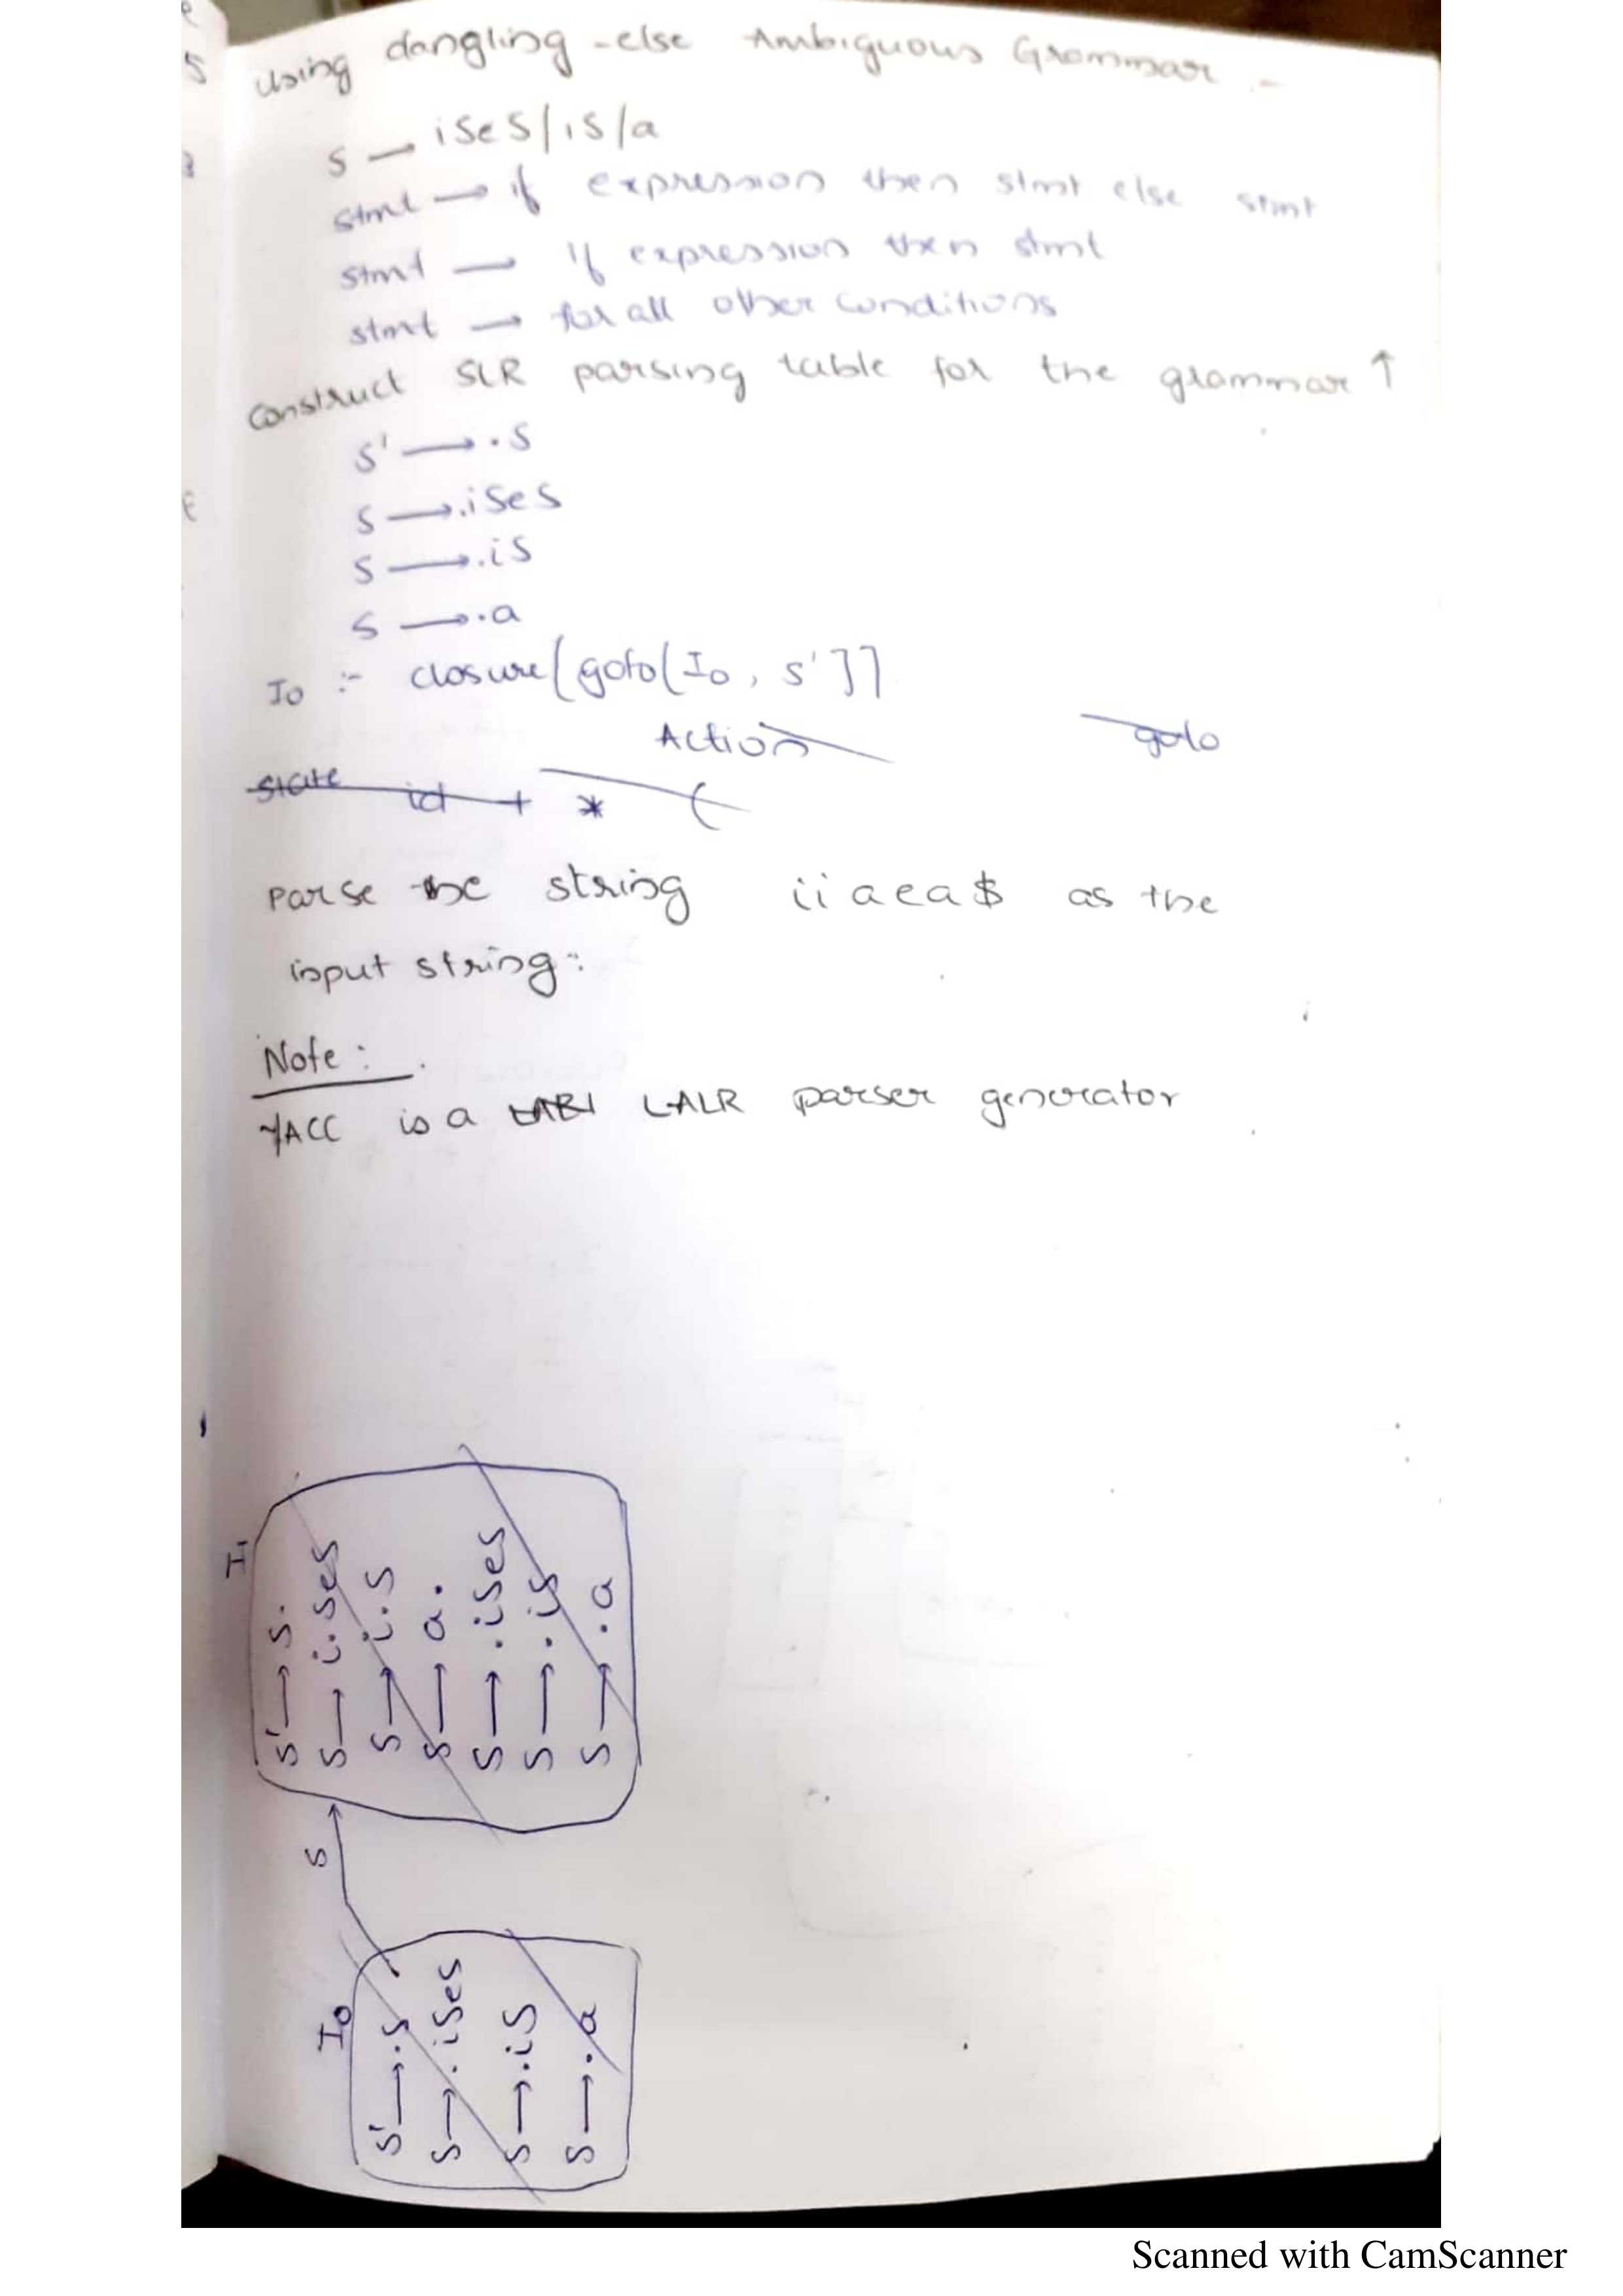 Using dangling-else Ambiguous Grammar -
S → iSeS/iS/a
stmt → if expression then stmt else stmt
stmt → If expression then stmt
stmt → for all other conditions
Construct SLR parsing table for the grammar ↑
S' → .S
S → .iSeS
S → .iS
S → .a
I0 :- closure[goto(I0, S']]
Action goto
State id + * (
Parse the string iiaea$ as the
input string:
Note:
YACC is a LALR parser generator
I1
S' → S.
S → i.SeS
S → i.S
S → a.
S → .iSeS
S → .iS
S → .a
S
I0
S' → .S
S → .iSeS
S → .iS
S → .a
Scanned with CamScanner